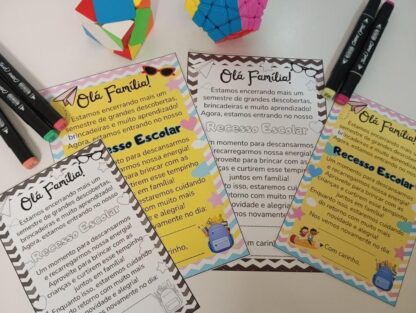 Olá Família!
Estamos encerrando mais um
semestre de grandes descobertas,
brincadeiras e muito aprendizado!
Agora, estamos entrando no nosso
Recesso Escolar
Um momento para descansarmos
e recarregarmos nossa energia!
Aproveite para brincar com as
crianças e curtirem esse tempinho
juntos em família!
Enquanto isso, estaremos cuidando
do retorno com muito mais
novidade e alegria!
Nos vemos novamente no dia:
Olá Família!
Estamos encerrando mais um
semestre de grandes descobertas,
brincadeiras e muito aprendizado!
Agora, estamos entrando no nosso
Recesso Escolar
momento para descansarmos
recarregarmos nossa energia!
Aproveite para brincar com as
crianças e curtirem esse tempinho
juntos em família!
Enquanto isso, estaremos cuidando
do retorno com muito mais
novidade e alegria!
vemos novamente no dia:
carinho,
Olá Família!
Estamos encerrando mais um
semestre de grandes descobertas,
brincadeiras e muito aprendizado!
Agora, estamos entrando no nosso
Recesso Escolar
Um momento para descansarmos
e recarregarmos nossa energia!
Aproveite para brincar com as
crianças e curtirem esse tempinho
juntos em família!
isso, estaremos cuidando
retorno com muito mais
novidade e alegria!
novamente no dia:
Com carinho,
Olá Família!
Estamos encerrando mais um
semestre de grandes descobertas,
brincadeiras e muito aprendizado!
Agora, estamos entrando no nosso
Recesso Escolar
Um momento para descansarmos
e recarregarmos nossa energia!
Aproveite para brincar com as
crianças e curtirem esse tempinho
juntos em família!
Enquanto isso, estaremos cuidando
do retorno com muito mais
novidade e alegria!
Nos vemos novamente no dia:
Com carinho,